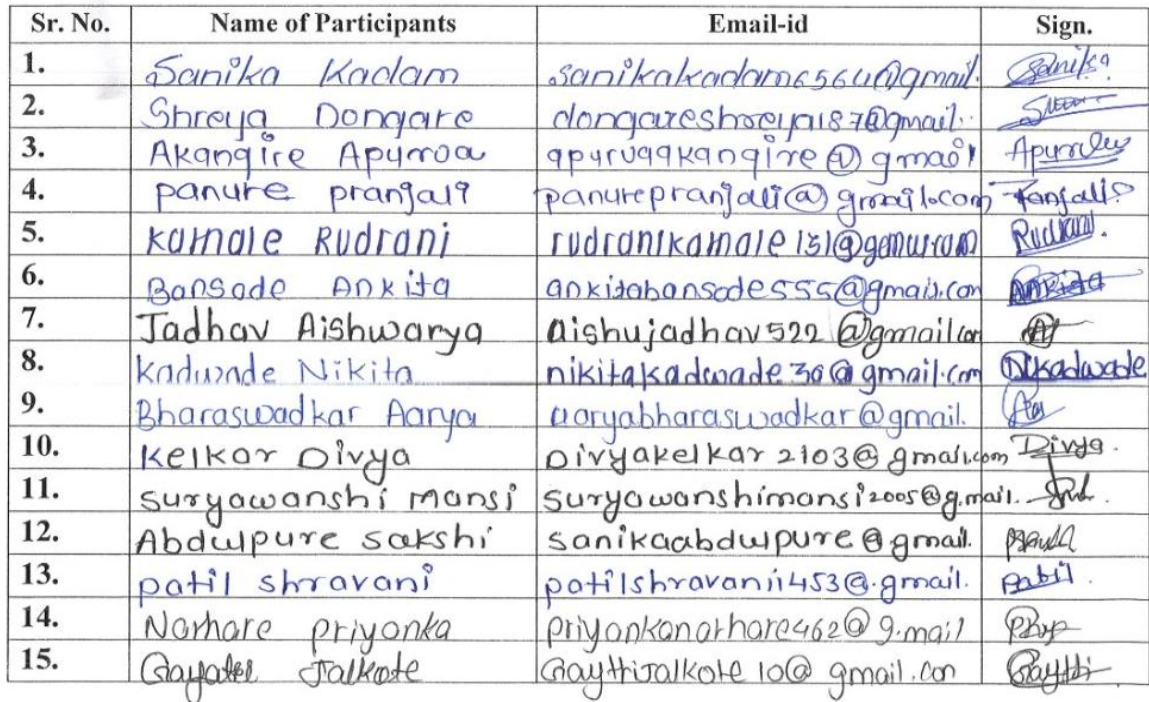 Sr. No. Name of Participants Email-id Sign.
1. Sanika Kadam sanikakadam6564@gmail. Sanika
2. Shreya Dongare dongareshreya187@gmail.
3. Akangire Apurva apurvaakangire@gmail
4. panure pranjali panurepranjali@gmail.com Pranjali
5. Kamale Rudrani rudranikamale151@gemai.com Rudrani.
6. Bansode Ankita ankitabansode555@gmail.com Ankita
7. Jadhav Aishwarya aishujadhav522@gmailcom
8. Kadwade Nikita nikitakadwade30@gmail.com Nkadwade
9. Bharaswadkar Aarya aaryabharaswadkar@gmail.
10. Kelkar Divya Divyakelkar2103@gmail.com Divya.
11. suryawanshi Mansi suryawanshimansi2005@g.mail.
12. Abdulpure sakshi sanikaabdulpure@gmail.
13. patil shravani patilshravanii453@.gmail. patil.
14. Narhare priyanka priyankanarhare462@g.mail
15. Gayatri Jalkote GaythiJalkote10@gmail.con Gaythi